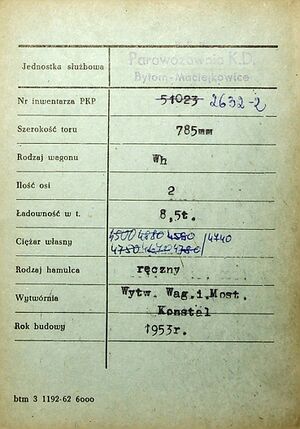 Jednostka służbowa
Parowozownia K.D.
Bytom-Maciejkowice
Nr inwentarza PKP 51023 2632-2
Szerokość toru 785mm
Rodzaj wagonu Wh
Ilość osi 2
Ładowność w t. 8,5t.
4500 4280 4580 / 4740
Ciężar własny 4750
Rodzaj hamulca ręczny
Wytwórnia Wytw. Wag.i.Most.
Konstal
Rok budowy 1953r.
btm 3 1192-62 6000